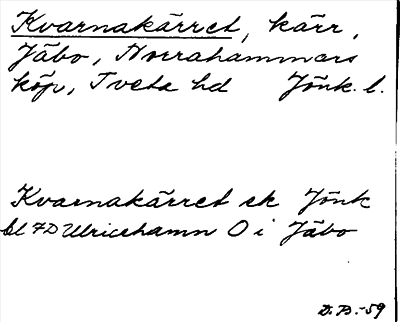 Kvarnakärret, kärr,
Jäbo, Norrahammars
köp, Tveta hd Jönk. l.
Kvarnakärret ek Jönk
bl 7D Ulricehamn O i Jäbo
D.B.-59